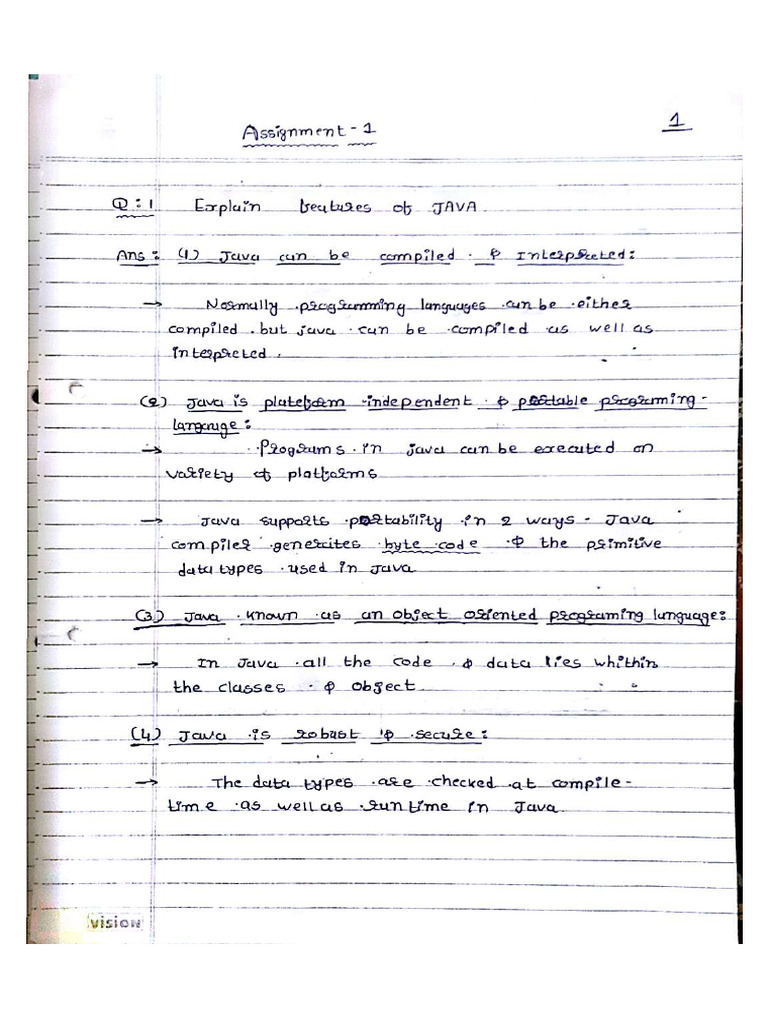 Assignment - 1
1
Q : 1 Explain features of JAVA
Ans : (1) Java can be compiled & Interpreted :
→ Normally programming languages can be either
compiled but java can be compiled as well as
interpreted.
(2) Java is plateform independent & portable programing -
language :
→ Programs in java can be executed on
variety of platforms
→ Java supports portability in 2 ways - Java
compiler generates byte code & the primitive
data types used in Java
(3) Java known as an object oriented programing language :
→ In Java all the code & data lies whithin
the classes & object
(4) Java is robust & secure :
→ The data types are checked at compile -
time as well as runtime in Java
vision